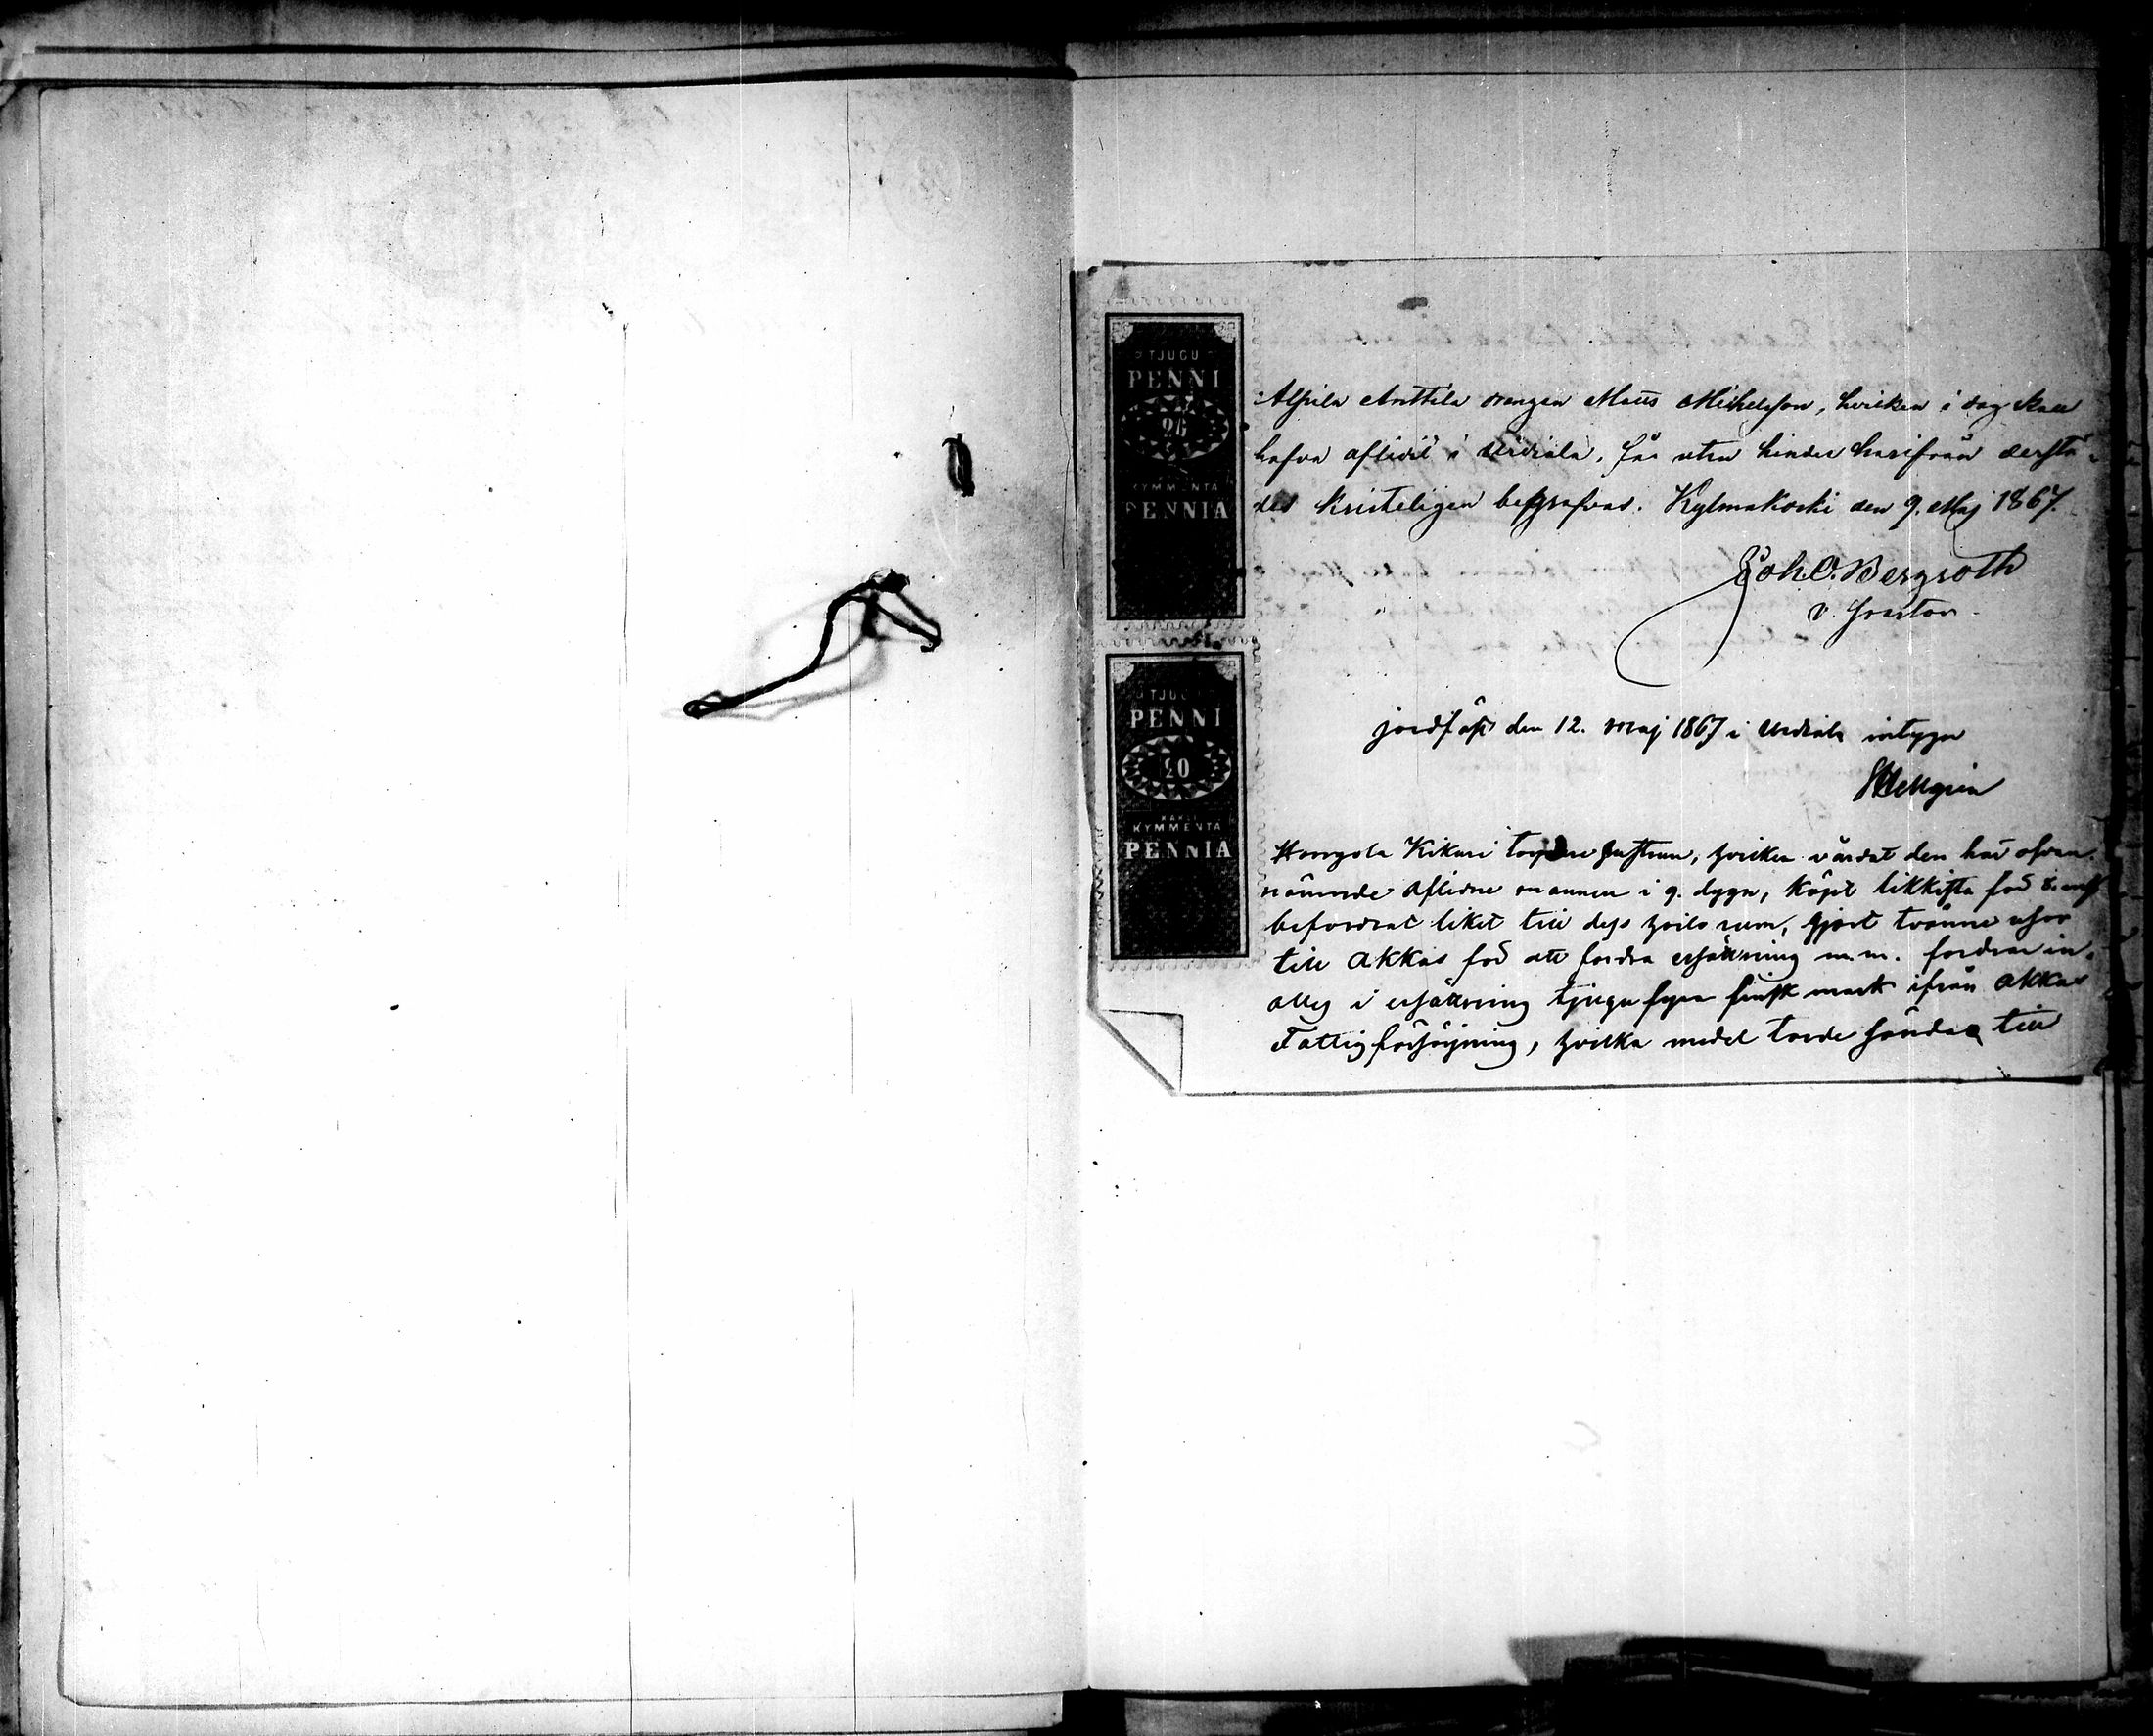 TJUGU
PENNI
20
KAKSI
KYMMENTÄ
PENNIÄ
TJUGU
PENNI
20
KAKSI
KYMMENTÄ
PENNIÄ
Anttila drengen Matts Michelsson, hvilken i dag skall
hafva aflidit i Urdiala, får utan hinder härifrån derstä-
des kristeligen begrafvas. Kylmäkoski den 9. Maj 1867.
Joh. O. Bergroth
v. Pastor.
jordfäst den 12. maj 1867 i Urdiala intygar
Hellgrén
Hongola Kikuri hustrun, hvilken vårdat den här ofvan-
nämnde aflidne mannen i 9. dygn, köpt likkista för 8. mk
befordrat liket till dess hvilo rum, gjort tvänne resor
till Akkas för att fordra ersättning m.m. fordrar in-
alles i ersättning tjugu fyra finsk mark ifrån Akkas
Fattigförsörjning, hvilka medel torde sändas till